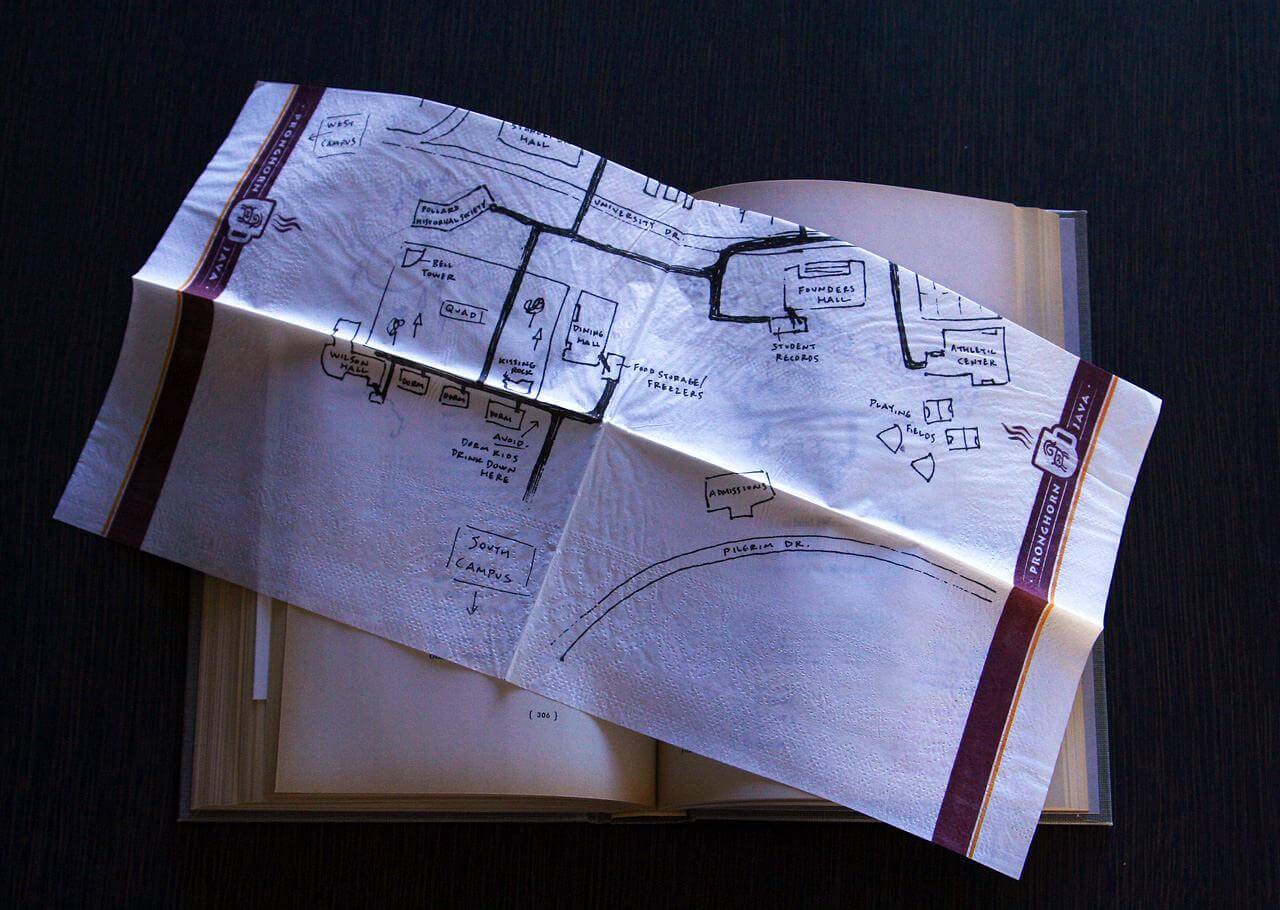 PRONGHORN JAVA
WEST
CAMPUS
HALL
UNIVERSITY DR.
POLLARD
HISTORICAL SOCIETY
BELL
TOWER
QUAD
DINING
HALL
FOUNDERS
HALL
STUDENT
RECORDS
ATHLETIC
CENTER
WILSON
HALL
DORM
DORM
DORM
KISSING
ROCK
FOOD STORAGE/
FREEZERS
PLAYING
FIELDS
AVOID-
DORM KIDS
DRINK DOWN
HERE
ADMISSIONS
SOUTH
CAMPUS
PILGRIM DR.
PRONGHORN JAVA
{ 306 }